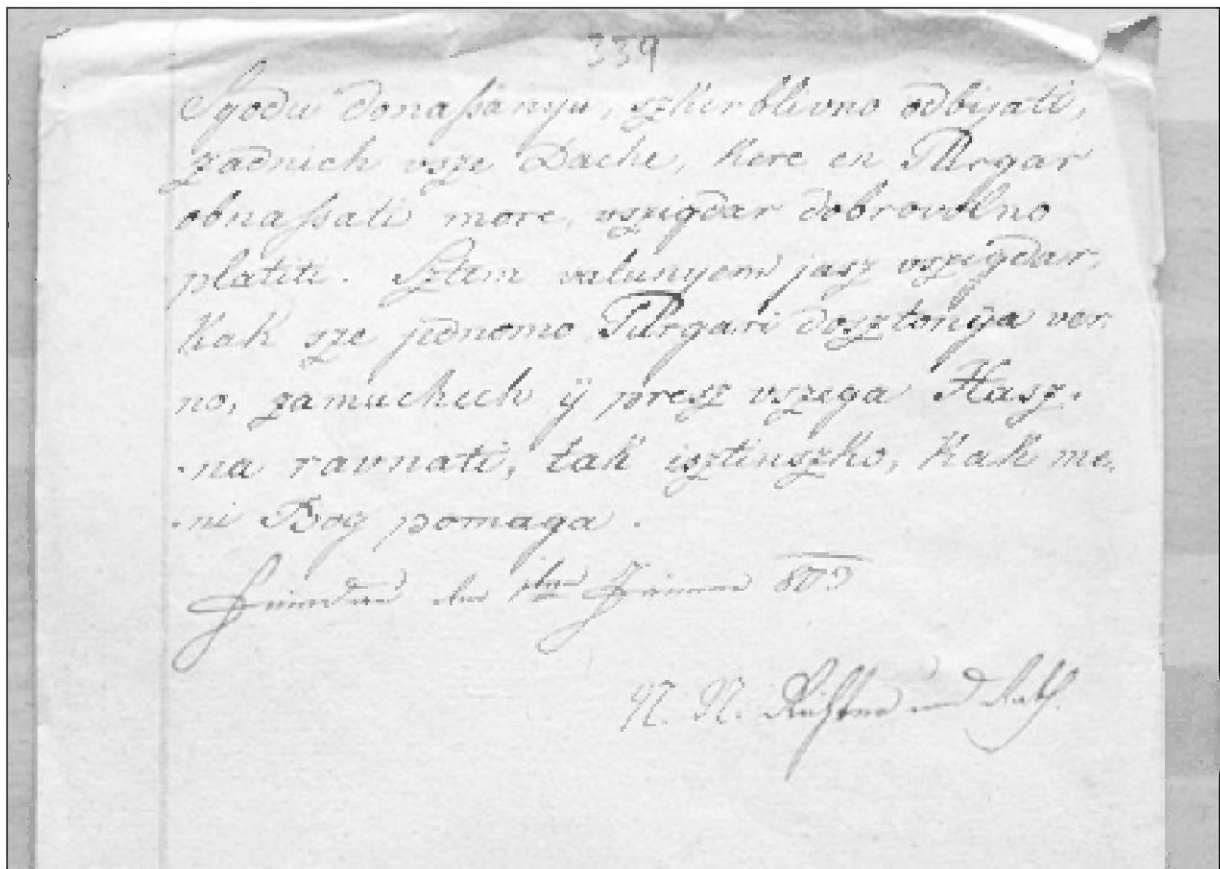 339
Sgodu donaſsanyu, szkerblivno odbijati,
zadnich vsze Dache, kere en Purgar
obnaſsati more, vszigdar dobrovolno
platiti. Sztem valunyem jasz vszigdar,
kak sze jednomo Purgari dosztonja ver
no, zamuchech ÿ presz vszega Hasz-
-na ravnati, tak isztinszko, kak me,
-ni Bog pomaga.
den 803
N. N. Richter und Rath.